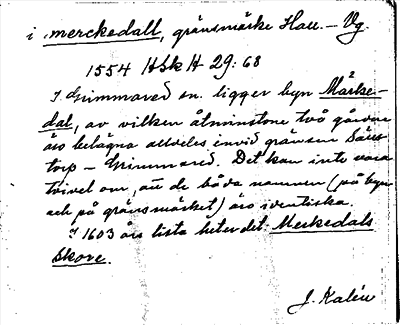 i merckedall, gränsmärke Hall. – Vg.
1554 HSkH 29:68
I Grimmared sn. ligger byn Märke-
dal, av vilken åtminstone två gårdar
äro belägna alldeles invid gränsen Säms-
torp – Grimmared. Det kan inte vara
tvivel om, att de båda namnen (på byn
och på gränsmärket) äro identiska.
I 1603 års lista heter det: Merkedals
Skore.
J. Kalén